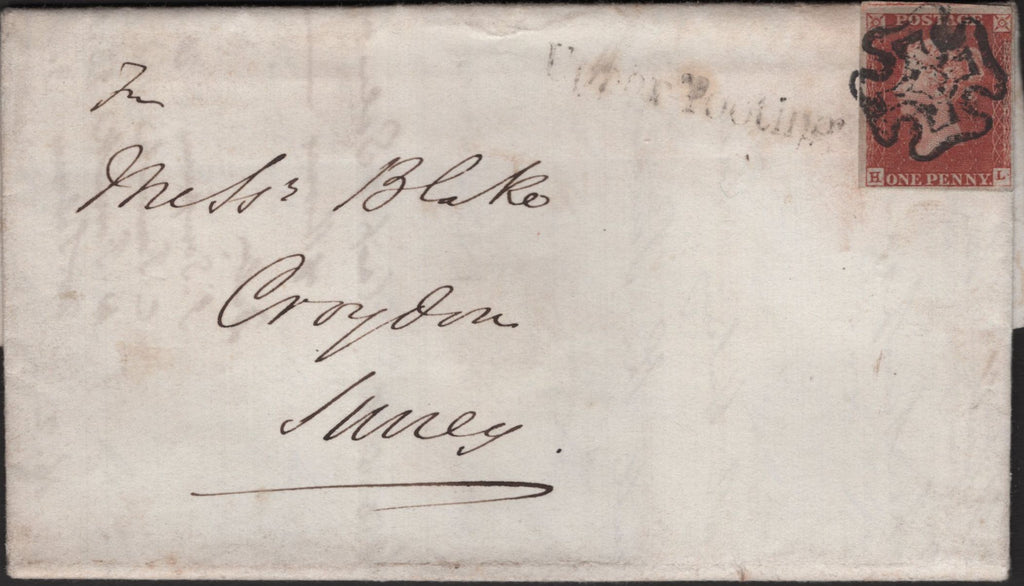 Upper Tooting
POSTAGE
H ONE PENNY L
Messrs Blake
Croydon
Surrey.